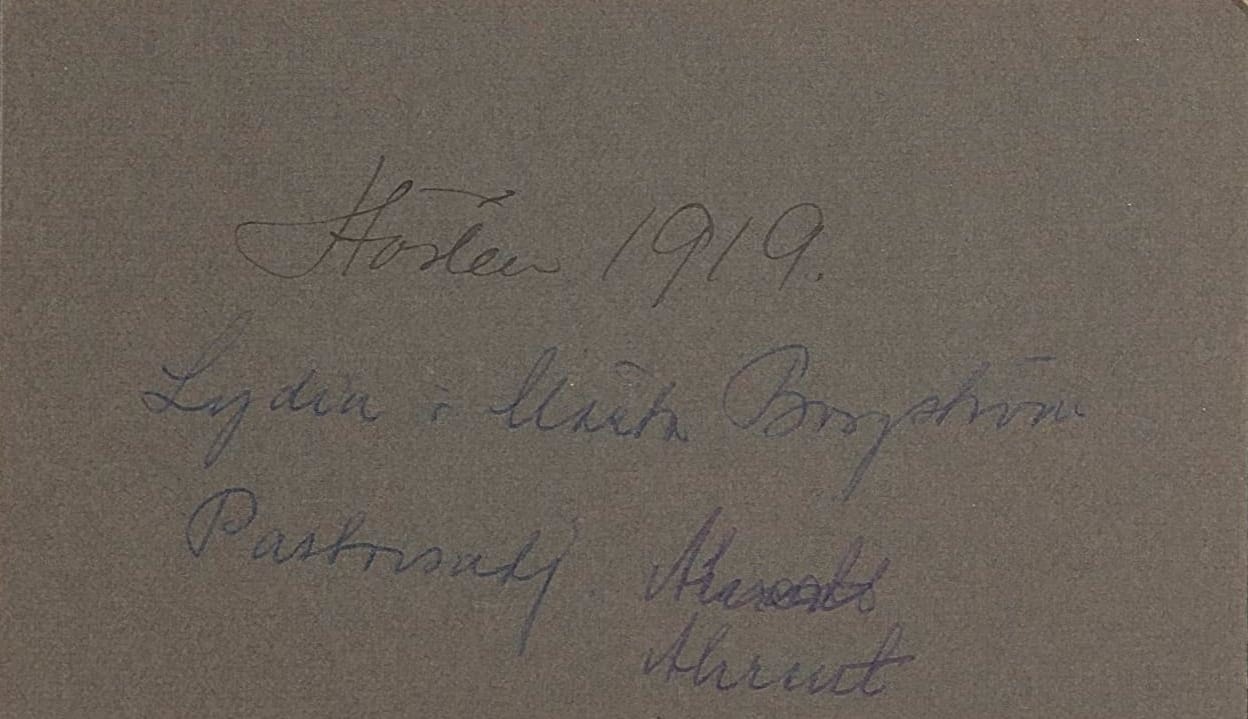 Hösten 1919.
Lydia o Märta Borgström
Pastorsadj.
Ahrent